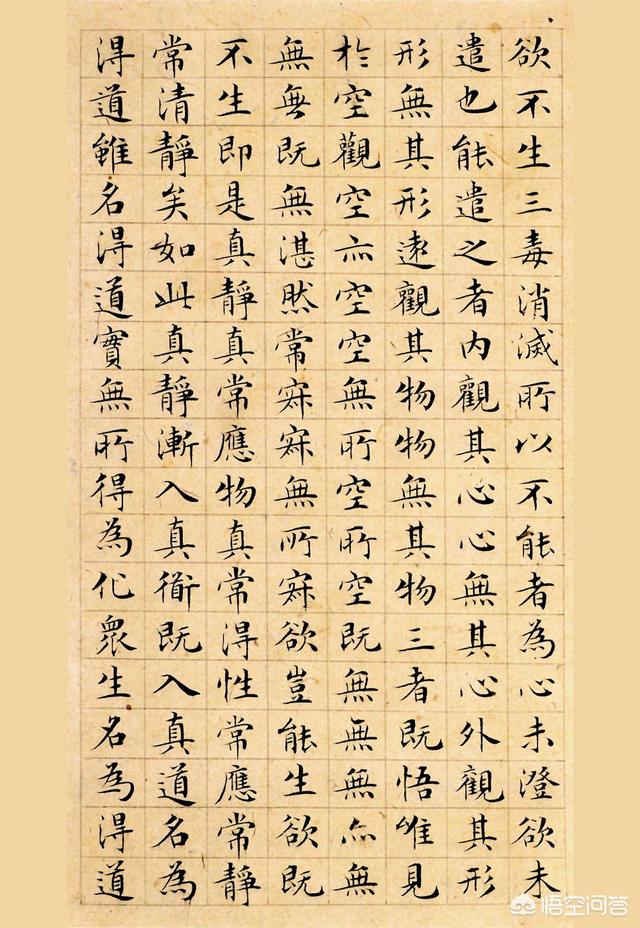 欲不生三毒消滅所以不能者為心未澄欲未
遣也能遣之者内觀其心心無其心外觀其形
形無其形遠觀其物物無其物三者既悟唯見
扵空觀空亦空空無所空所空既無無無亦無
無無既無湛然常寂寂無所寂欲豈能生欲既
不生即是真靜真常應物真常得性常應常靜
常清靜矣如此真靜漸入真衜既入真道名為
得道雖名得道實無所得為化眾生名為得道
悟空问答